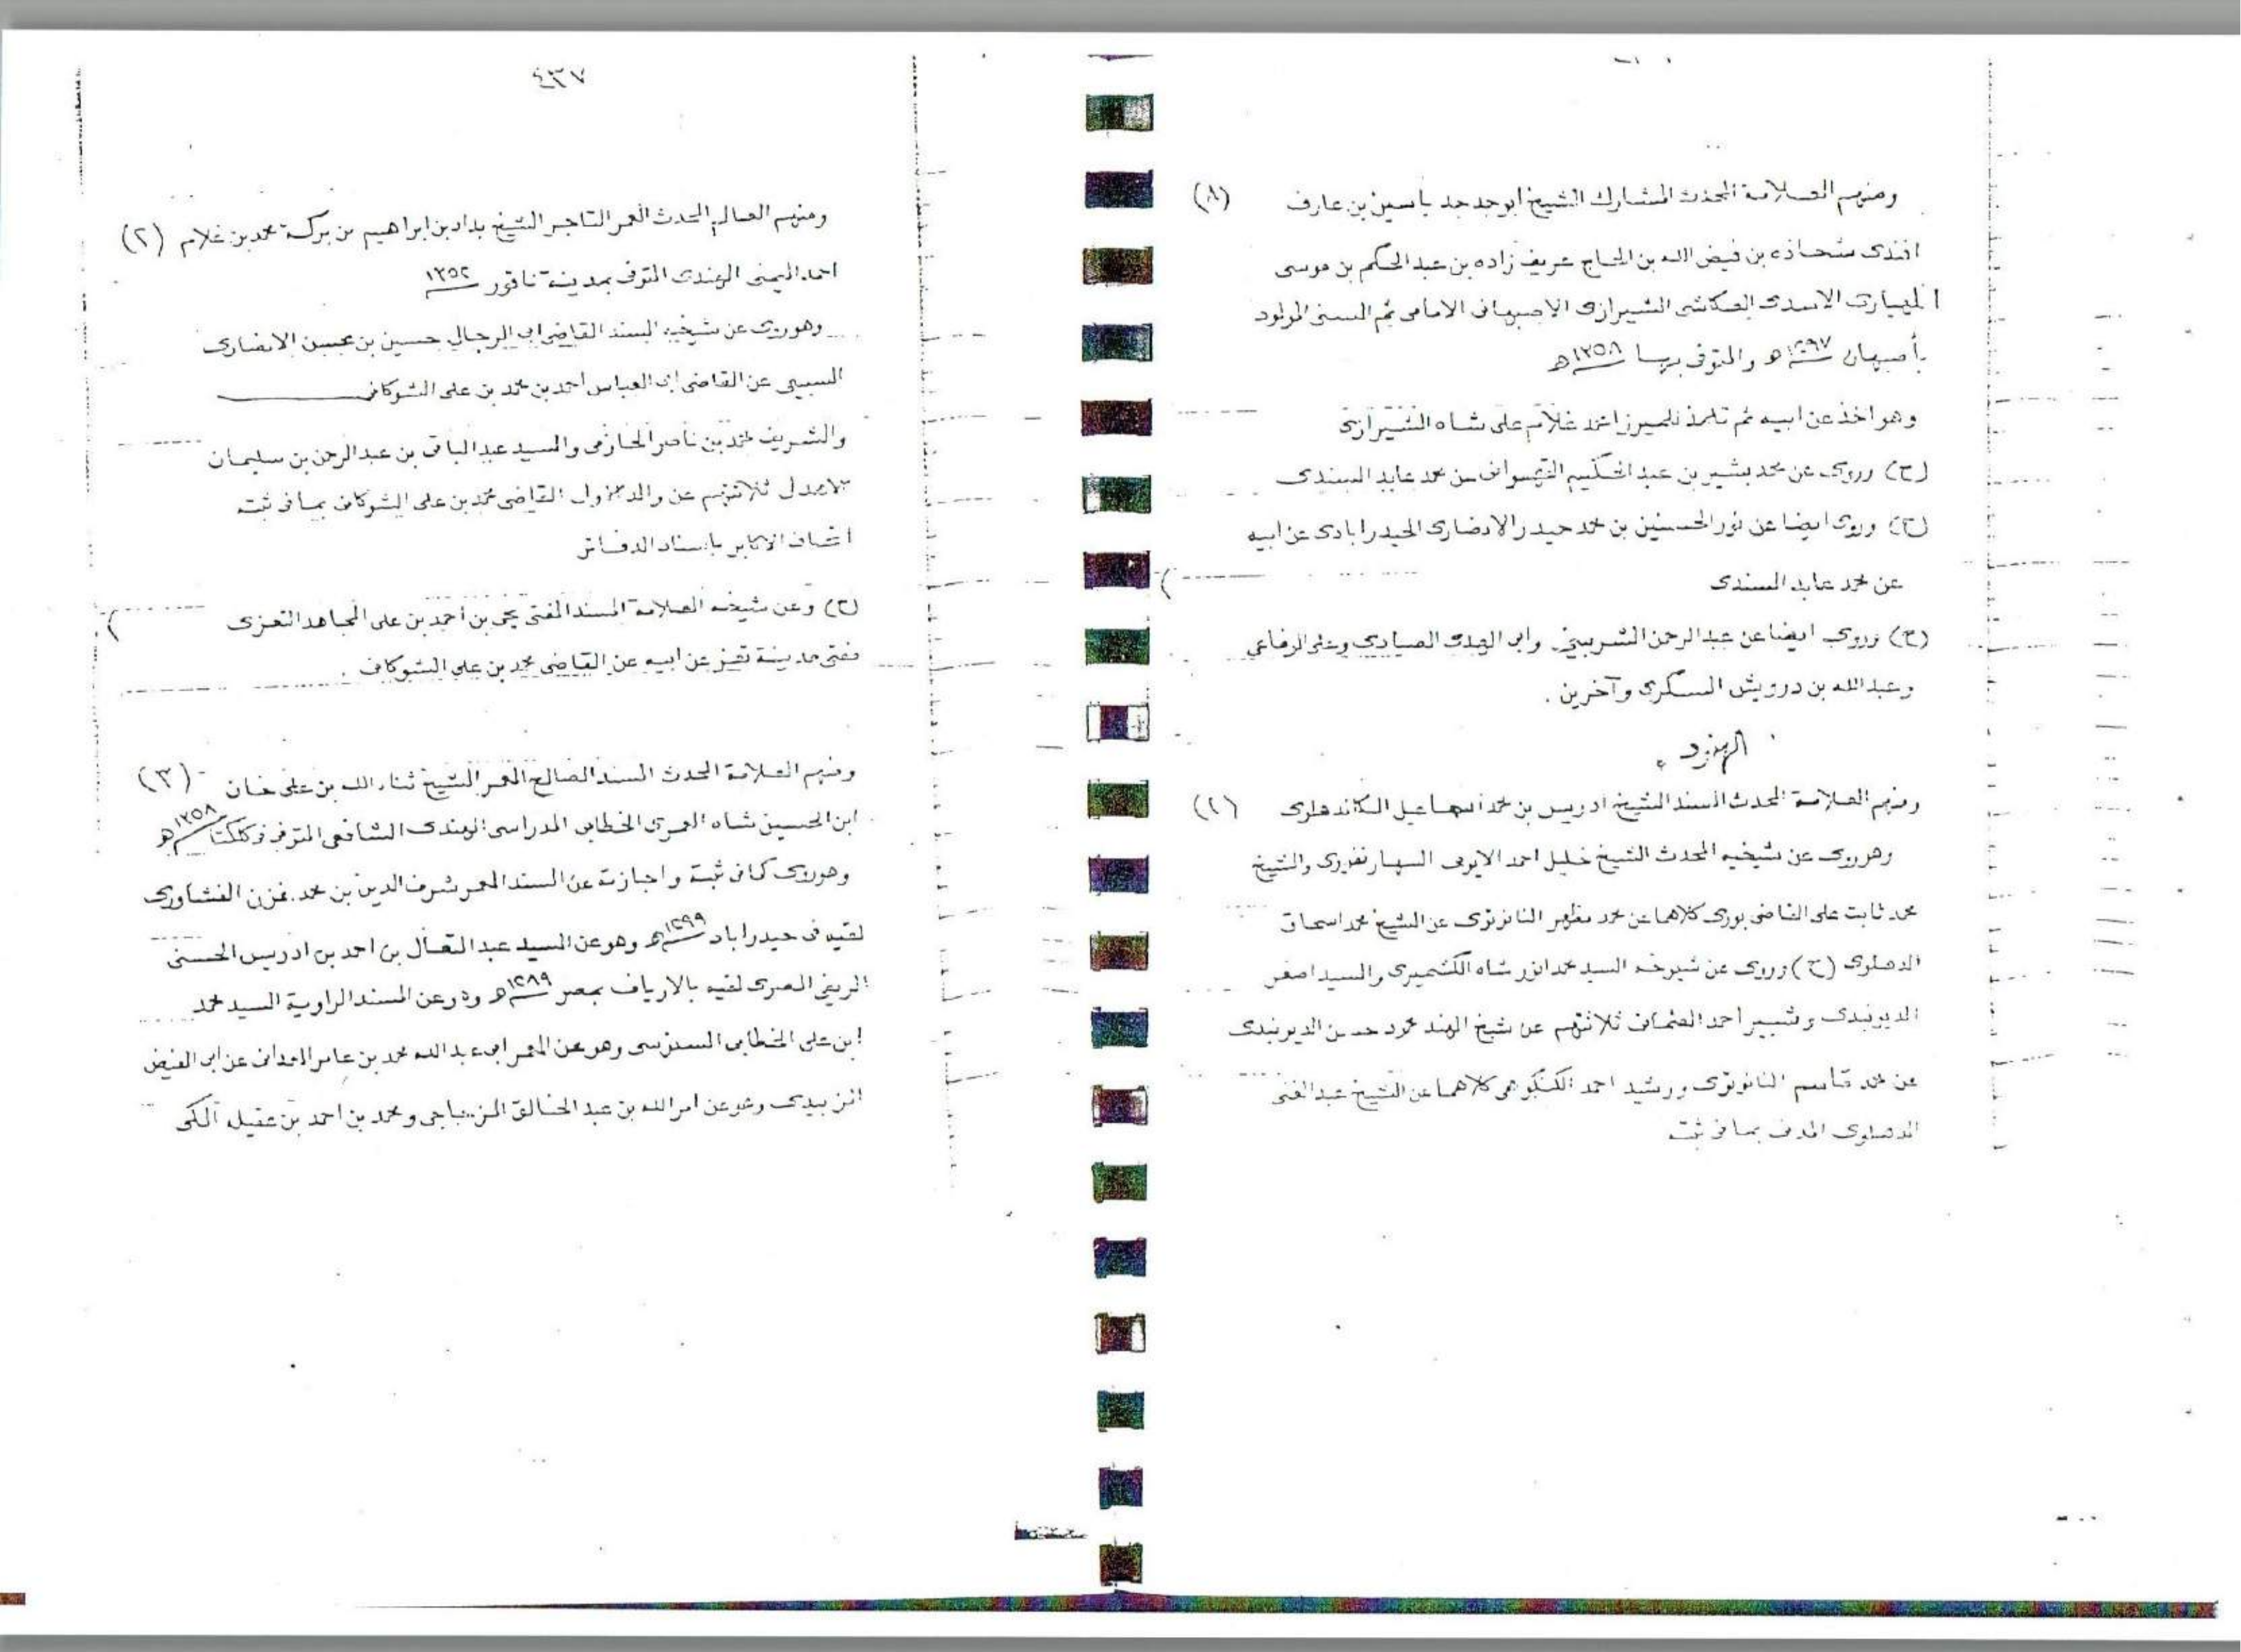 (٨) ومنهم العلامة المحدث المشارك الشيخ ابو جد جد ياسين بن عارف
افندى شحاذه بن فيض الله بن الحاج عريف زاده بن عبد الحكم بن موسى
الاسدى الكاشى الشيرازى الاصبهانى الامامى ثم السنى المولود
بأصبهان ١٢٩٧ه والمتوفى بها ١٣٥٨ه
وهو اخذ عن ابيه ثم تلمذ للميرزا احمد غلام على شاه الشيرازى
(ح) وروى عن محمد بشير بن عبد الحكيم السهسوانى عن محمد عابد السندى
(ح) وروى ايضا عن نور الحسنين بن محمد حيدر الانصارى الحيدرابادى عن ابيه
عن محمد عابد السندى
(ح) وروى ايضا عن عبد الرحمن الشربينى وابى الهدى الصيادى وعلى الرفاعي
وعبد الله بن درويش السكرى وآخرين .
الهنود
(١) ومنهم العلامة المحدث المسند الشيخ ادريس بن محمد اسماعيل الكاندهلوى
وهو يروى عن شيخيه المحدث الشيخ خليل احمد الايوبى السهارنفورى والشيخ
محمد ثابت على القاضى بورى كلاهما عن محمد مظهر النانوتوى عن الشيخ محمد اسحاق
الدهلوى (ح) وروى عن شيوخه السيد محمد انور شاه الكشميرى والسيد اصغر
الديوبندى وشبير احمد العثمانى ثلاثتهم عن شيخ الهند محمود حسن الديوبندى
عن محمد قاسم النانوتوى ورشيد احمد الكنكوهى كلاهما عن الشيخ عبد الغنى
الدهلوى المدنى بما فى ثبته
٤٣٧
(٢) ومنهم العالم المحدث المعمر التاجر الشيخ بداد بن ابراهيم بن بركة محمد بن غلام
احمد اليمنى الهندى المتوفى بمدينة ناقور ١٣٥٢
وهو يروى عن شيخيه المسند القاضى ابى الرجال حسين بن محسن الانصارى
السبيعى عن القاضى ابى العباس احمد بن محمد بن على الشوكانى
والشريف محمد بن ناصر الحازمى والسيد عبد الباقى بن عبد الرحمن بن سليمان
الاهدل ثلاثتهم عن والد الاول القاضى محمد بن على الشوكانى بما فى ثبته
اتحاف الاكابر باسناد الدفاتر
(ح) وعن شيخه العلامة المسند المفتى يحيى بن أحمد بن على المجاهد التعزى
مفتى مدينة تعز عن ابيه عن القاضى محمد بن على الشوكانى .
(٣) ومنهم العلامة المحدث المسند الصالح المعمر الشيخ ثناء الله بن على خان
ابن الحسين شاه العمرى الخطابى المدراسى الهندى الشافعى المتوفى فى كلكتا ١٣٥٨ه
وهو يروى كما فى ثبته واجازته عن المسند المعمر شرف الدين بن محمد الفشاورى
لقيه فى حيدراباد ١٢٩٩ه وهو عن السيد عبد المتعال بن احمد بن ادريس الحسنى
الريفى المصرى لقيه بالارياف بمصر ١٢٨٩ه وهو عن المسند الراوية السيد محمد
ابن على الخطابى السنوسى وهو عن المعمر ابى عبد الله محمد بن عامر المعدانى عن ابى الفيض
الزبيدى وهو عن امر الله بن عبد الخالق المزجاجى ومحمد بن احمد بن عقيله المكى